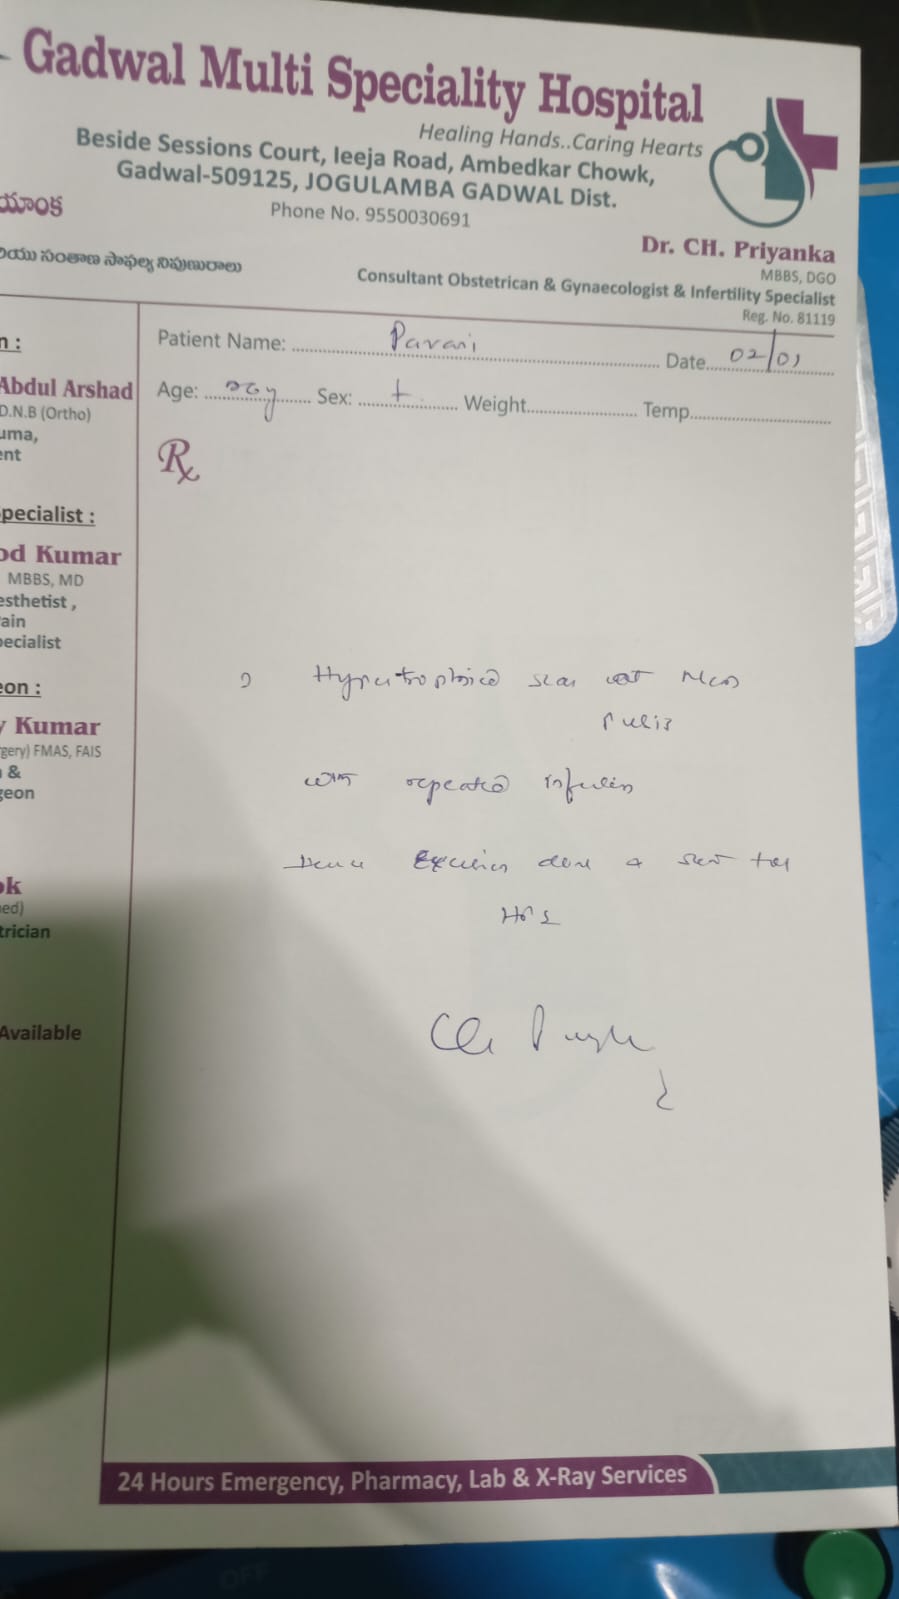 Gadwal Multi Speciality Hospital
Healing Hands..Caring Hearts
Beside Sessions Court, Ieeja Road, Ambedkar Chowk,
Gadwal-509125, JOGULAMBA GADWAL Dist.
Phone No. 9550030691
యాంక
Dr. CH. Priyanka
MBBS, DGO
సంతాణ సాఫల్య నిపుణురాలు
Consultant Obstetrican & Gynaecologist & Infertility Specialist
Reg. No. 81119
Patient Name: Pavani Date 02/01
Age: Sex: Weight Temp
Rx
n :
Abdul Arshad
D.N.B (Ortho)
uma,
ent
pecialist :
od Kumar
MBBS, MD
esthetist ,
ain
pecialist
eon :
y Kumar
gery) FMAS, FAIS
n &
geon
ok
ned)
trician
Available
Hypertrophied scar
with repeated
Hence Excision done & sent for
24 Hours Emergency, Pharmacy, Lab & X-Ray Services
OFF